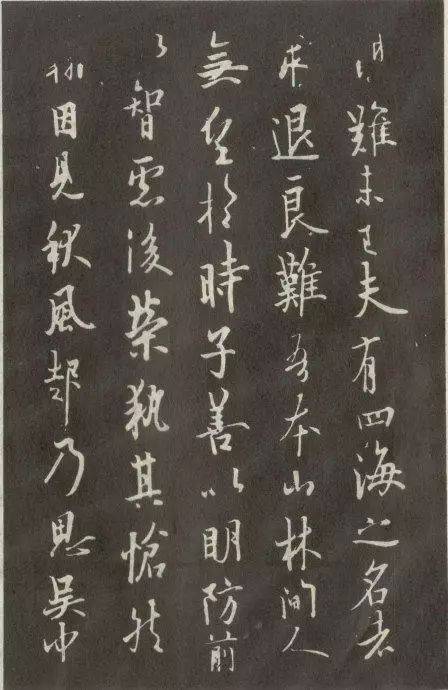 難未已夫有四海之名者
求退良難吾本山林間人
無望於時子善以明防前
以智慮後榮執其愴然
翰因見秋風起乃思吳中